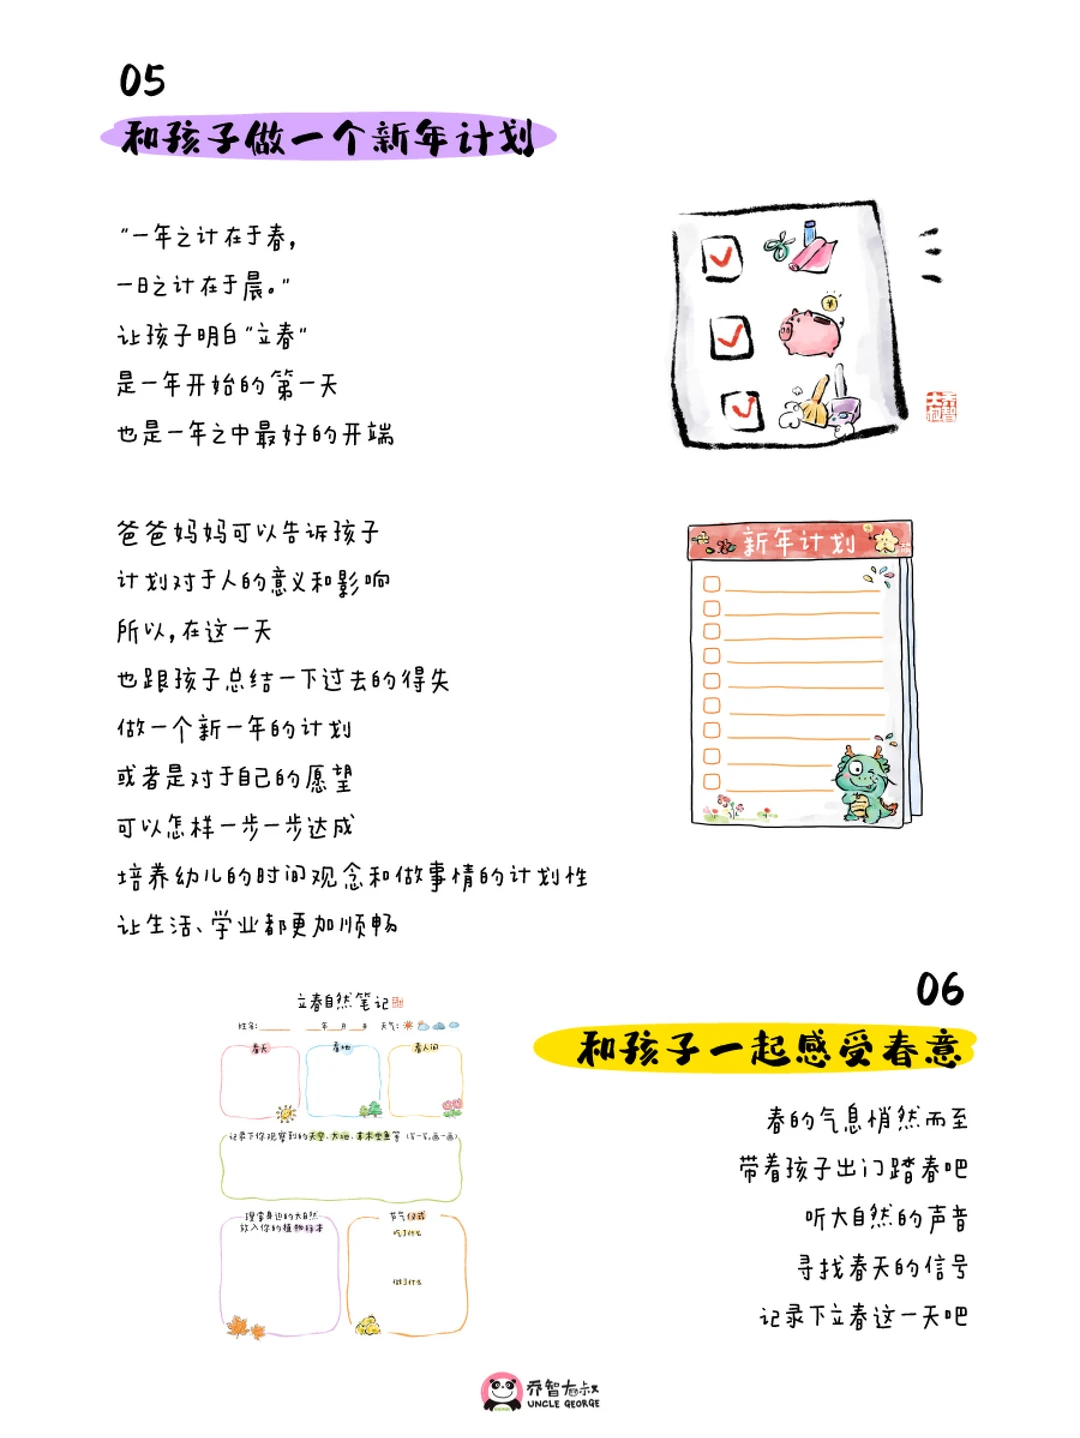 05
和孩子做一个新年计划
"一年之计在于春，
一日之计在于晨。"
让孩子明白"立春"
是一年开始的第一天
也是一年之中最好的开端
爸爸妈妈可以告诉孩子
计划对于人的意义和影响
所以，在这一天
也跟孩子总结一下过去的得失
做一个新一年的计划
或者是对于自己的愿望
可以怎样一步一步达成
培养幼儿的时间观念和做事情的计划性
让生活、学业都更加顺畅
乔智大叔
新年计划
立春自然笔记
姓名：
年 月 日 天气：
看天 看地 看人间
记录下你观察到的天空、大地、草木虫鱼等（写一写，画一画）
搜索身边的大自然
放入你的植物标本
节气仪式
吃了什么
做了什么
06
和孩子一起感受春意
春的气息悄然而至
带着孩子出门踏春吧
听大自然的声音
寻找春天的信号
记录下立春这一天吧
乔智大叔
UNCLE GEORGE